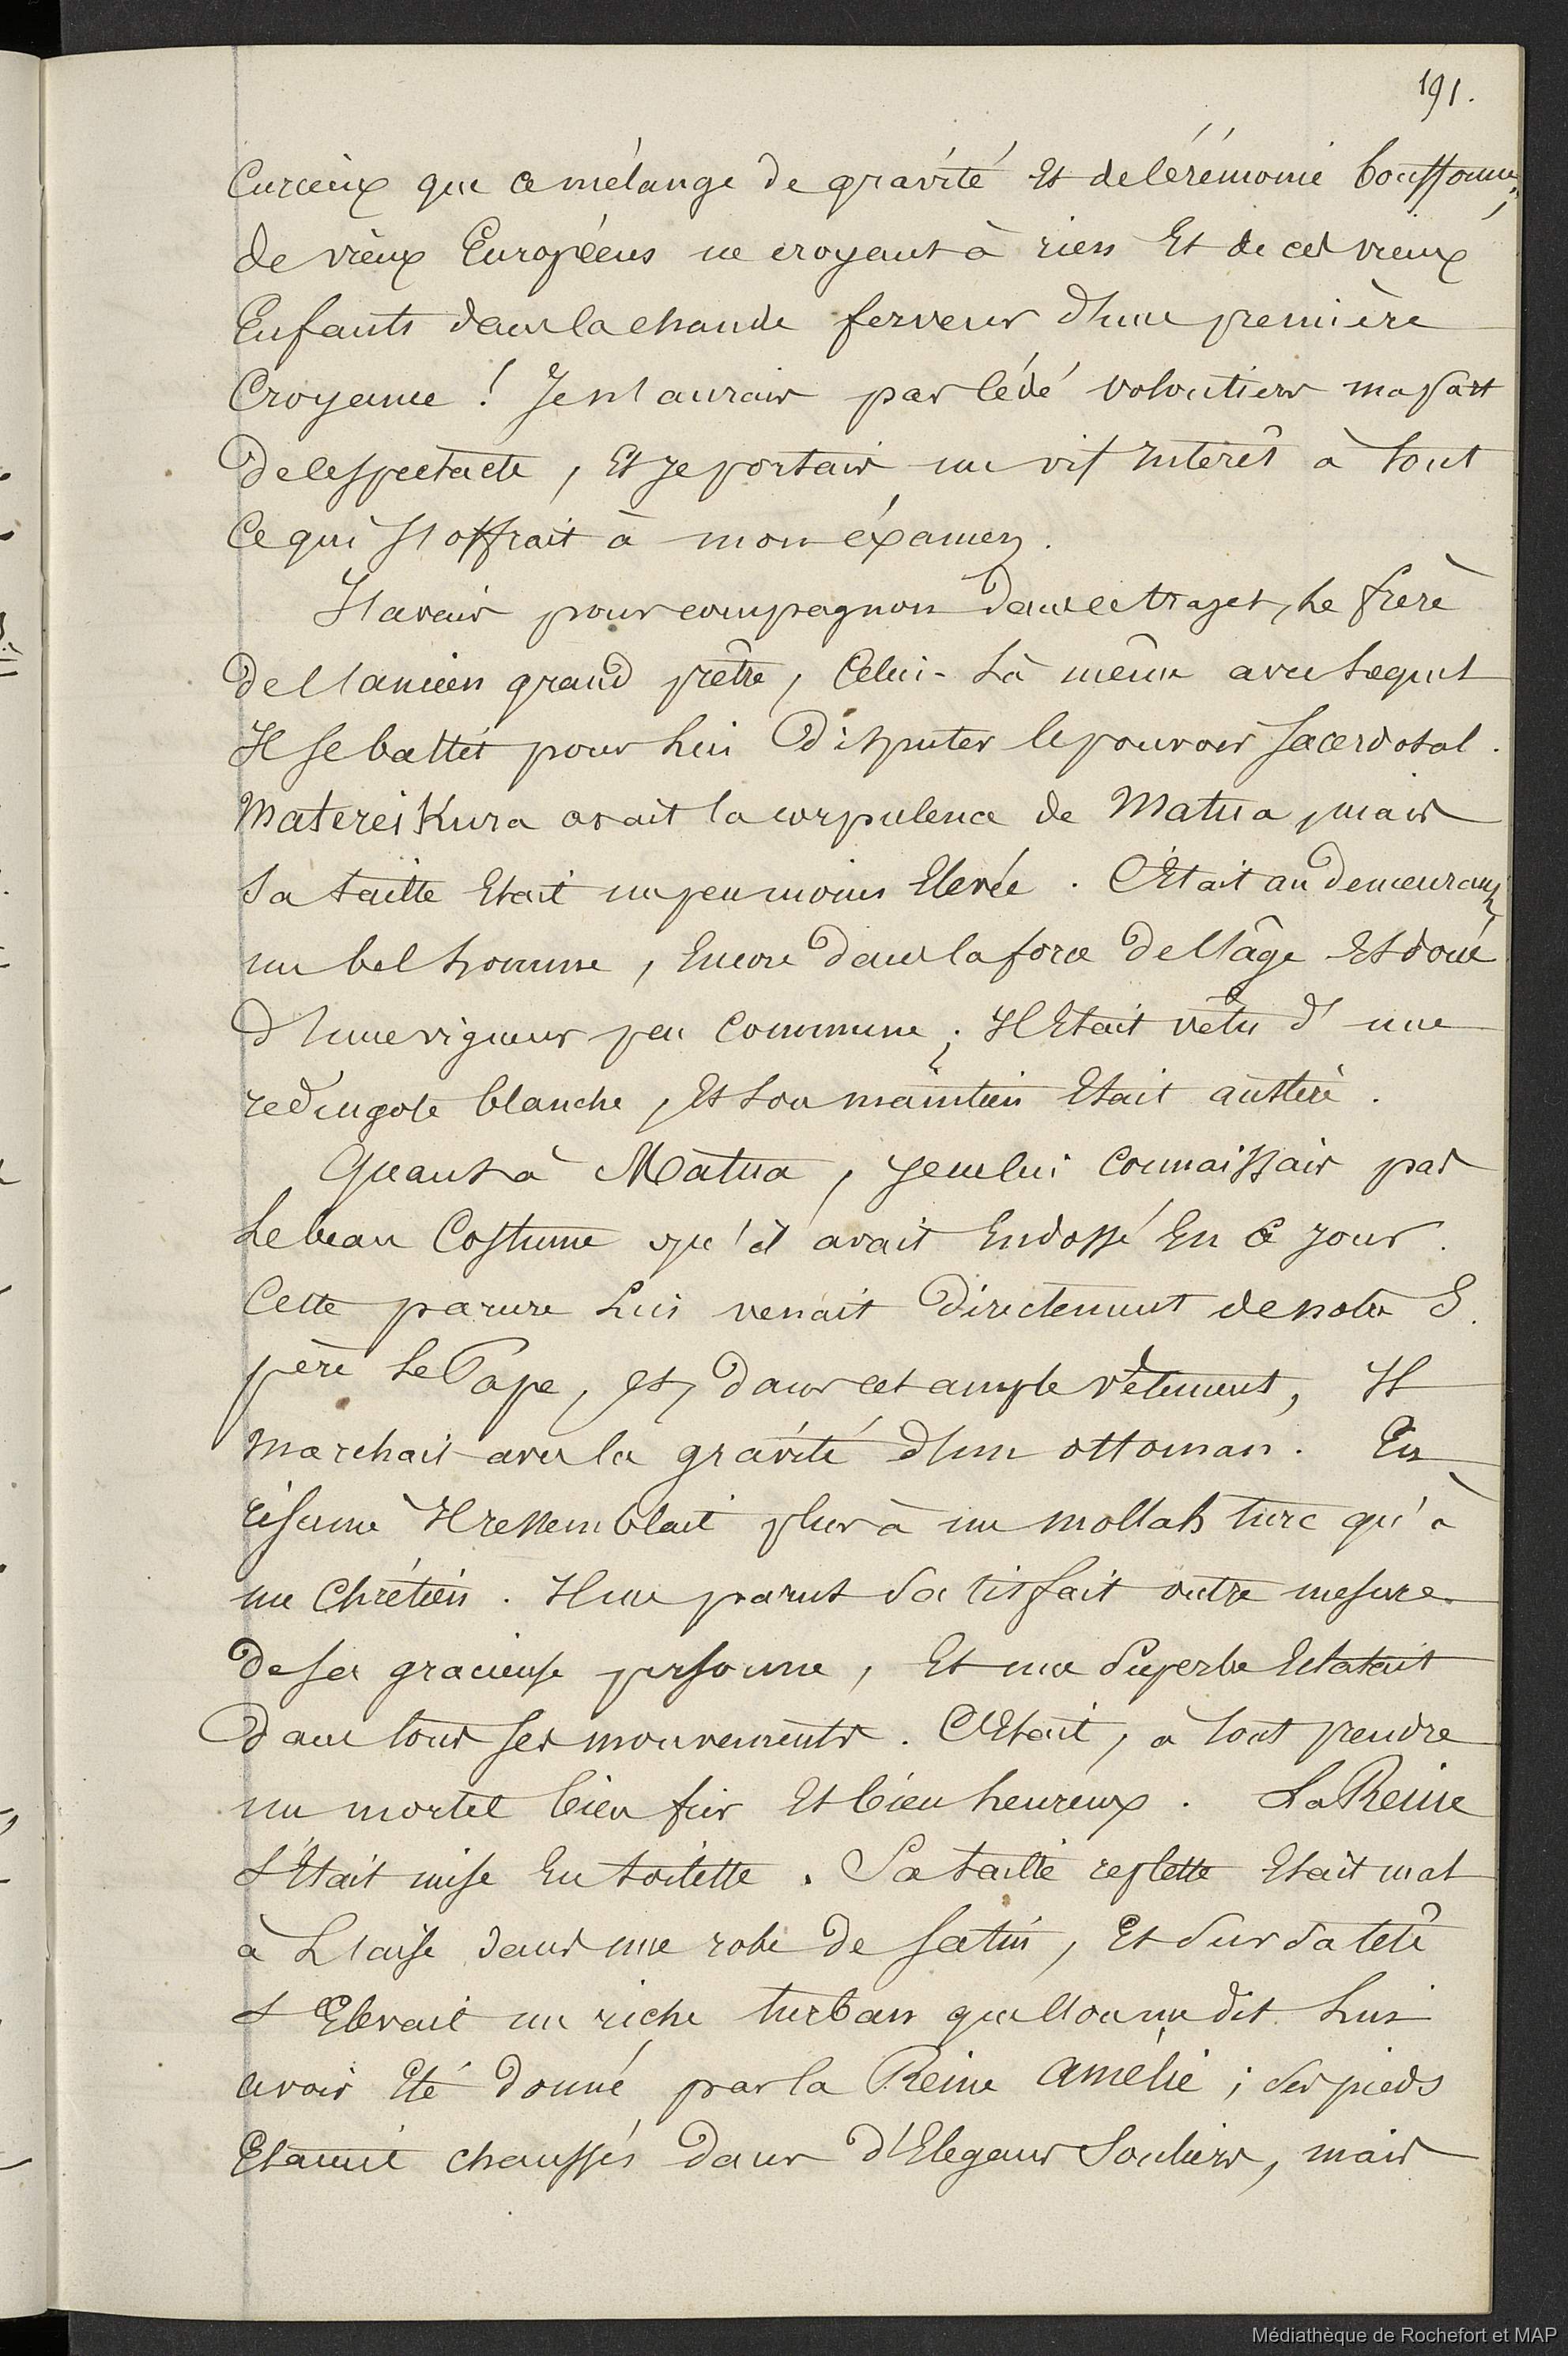 191.
Curieux que ce mélange de gravité Et de Cérémonie bouffonne,
de vieux Européens ne croyant à rien Et de ces vieux
Enfants dans la chaude ferveur d'une première
Croyance ! Je n'aurais pas cédé volontiers ma part
De ce spectacle, Et je portais un vif Intérêt à tout
Ce qui s'offrait à mon éxamen.
J'avais pour compagnon Dans ce trajet, Le frère
De l'ancien grand prêtre, Celui-Là même avec Lequel
Il se battit pour Lui Disputer le pouvoir Sacerdotal.
Matereikura avait la corpulence de Matua, mais
Sa taille Etait un peu moins Elevée. C'Etait au Demeurant,
un bel homme, Encore Dans la force De l'âge Et doué
D'une vigueur peu Commune ; Il Etait vêtu d'une
redingote blanche, Et Son maintien Etait austère.
Quant à Matua, Je ne lui Connaissais pas
Le beau Costume qu'il avait Endossé En ce jour.
Cette parure Lui venait Directement de notre S.
père Le Pape, Et, Dans cet ample vêtement, Il
Marchait avec la gravité d'un ottoman. En
résumé Il ressemblait plus à un mollah turc qu'à
un Chrétien. Il me parut Satisfait outre mesure
De Sa gracieuse personne, Et une Superbe Eclatait
Dans tous Ses mouvements. C'Etait, à tout prendre
un mortel bien fier Et bien heureux. La Reine
S'Etait mise En toilette. Sa taille replette Etait mal
à L'aise dans une robe de Satin, Et Sur Sa tête
S'Elevait un riche turban que l'on me dit Lui
avoir Eté Donné par la Reine Amélie ; Ses pieds
Etaient chaussés Dans d'Elegans Souliers, mais
Médiathèque de Rochefort et MAP